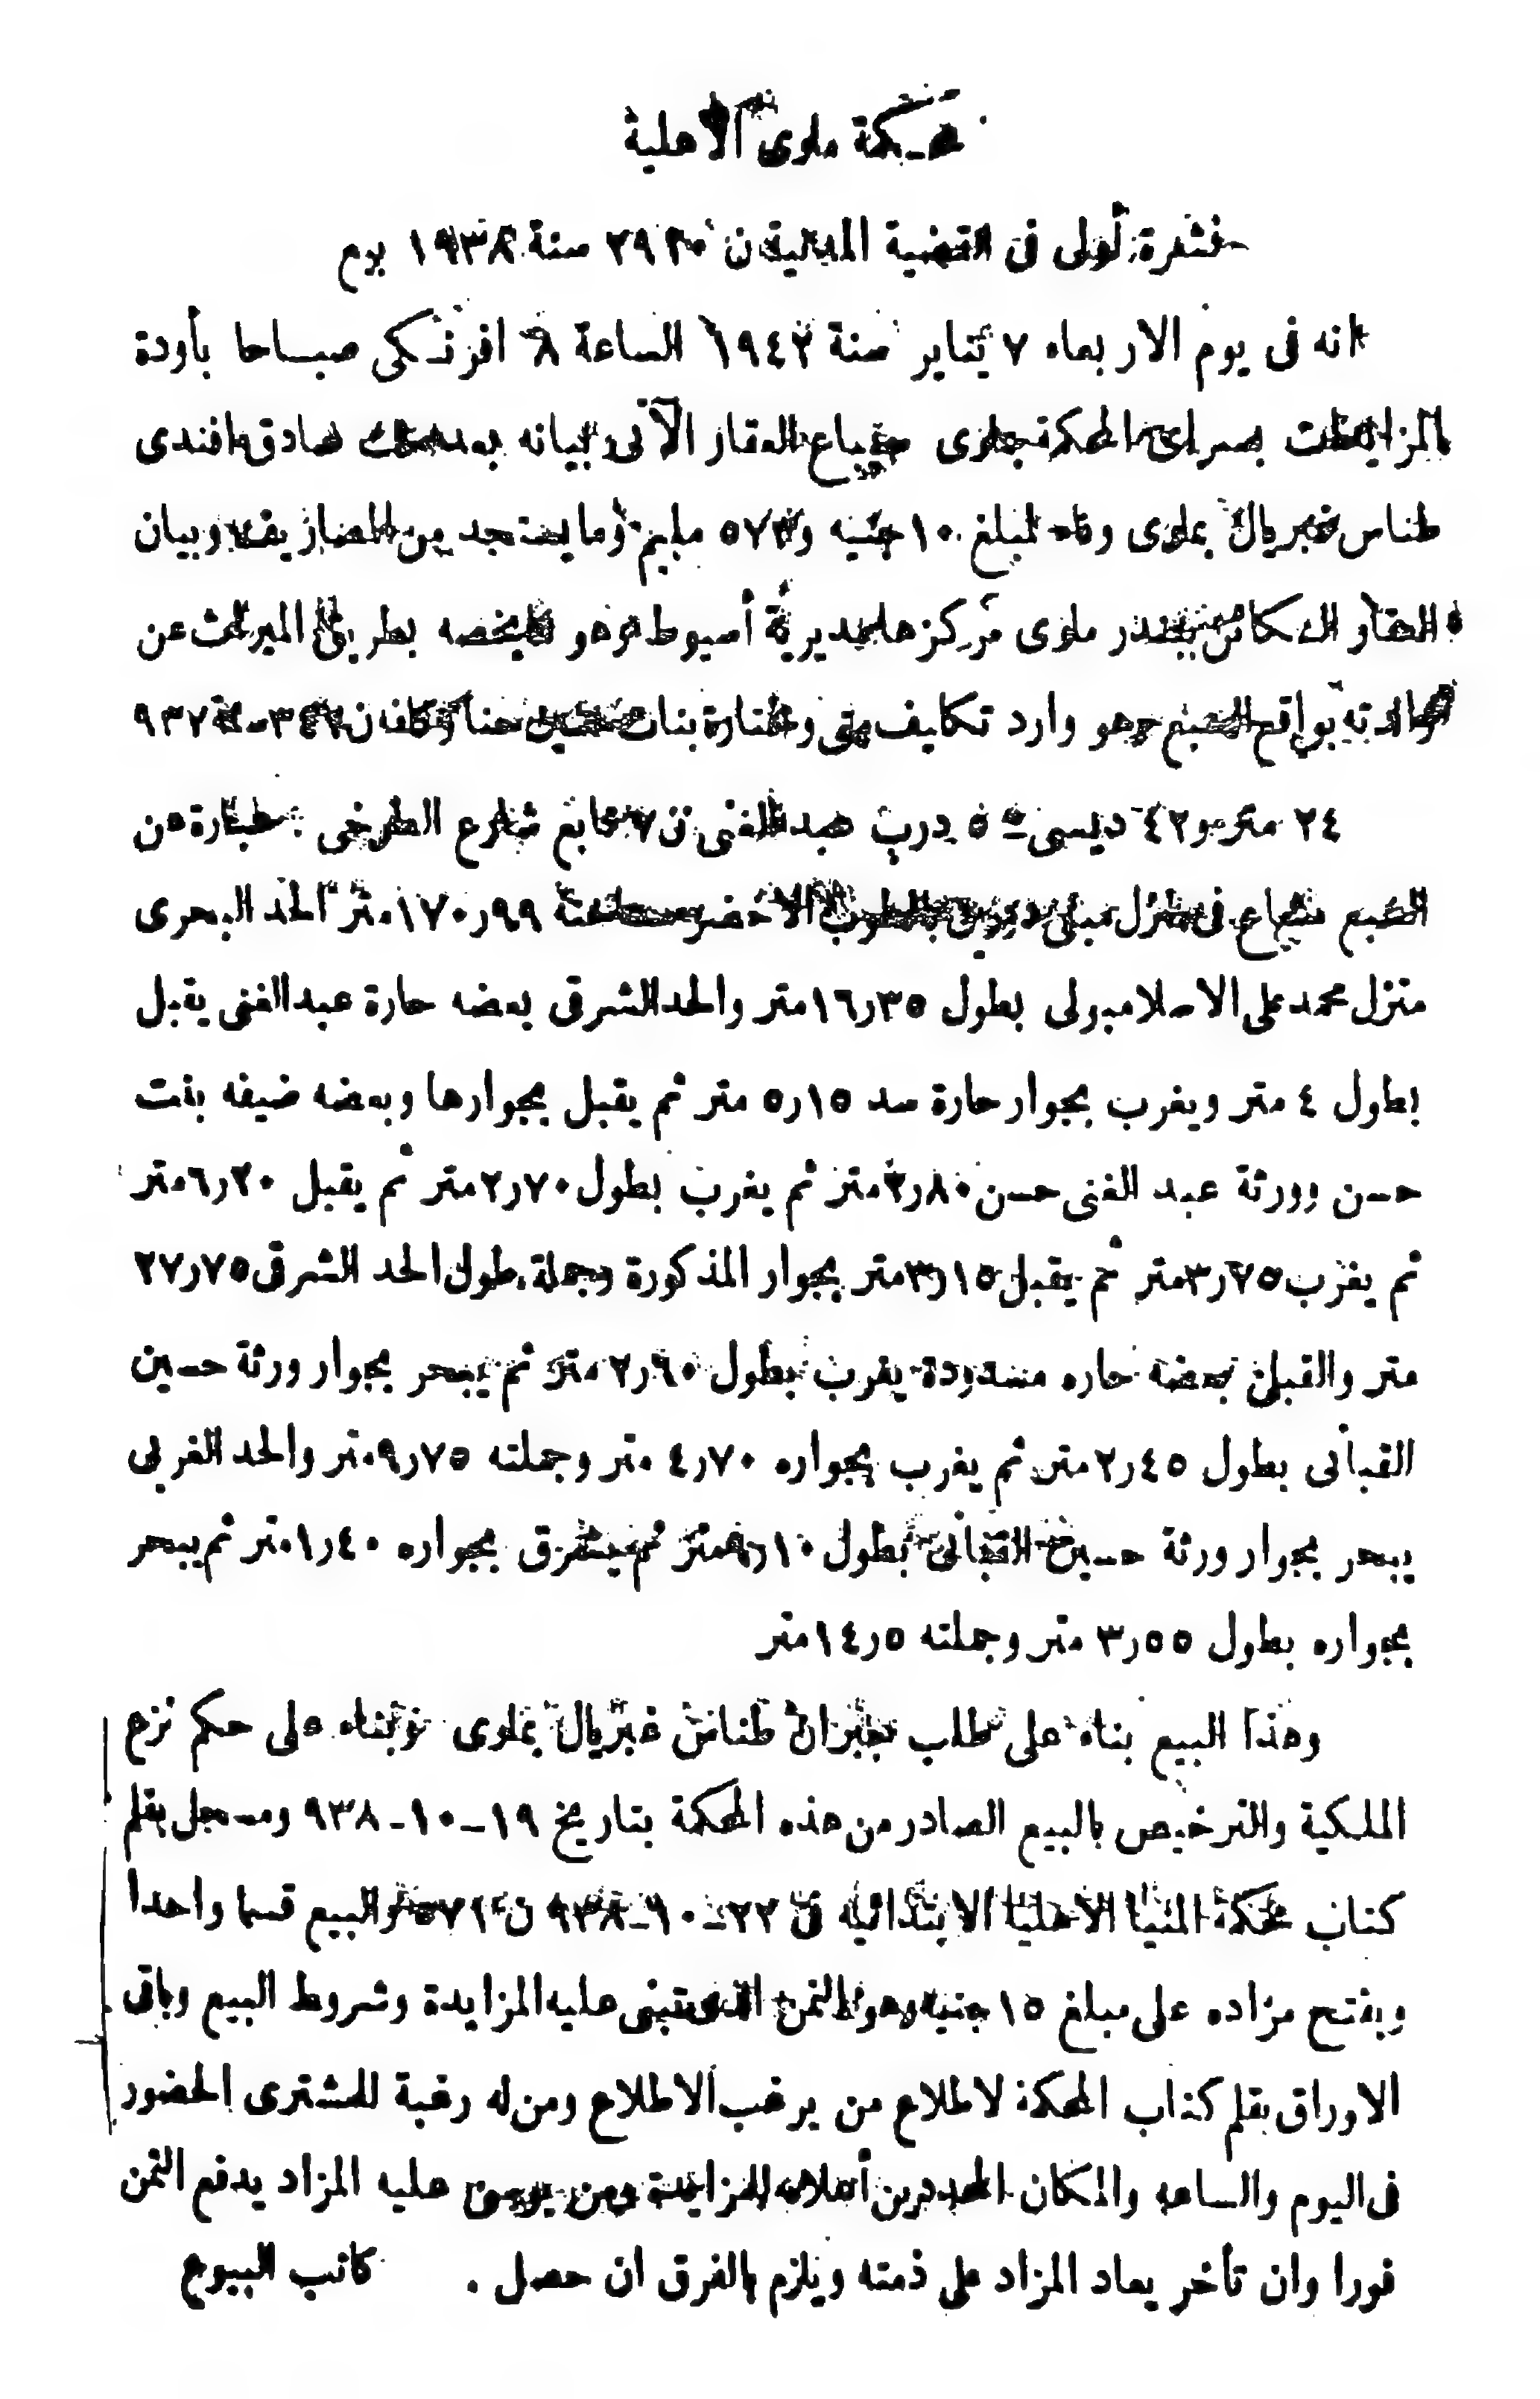 محكمة ملوى الاهلية
نشرة أولى فى القضية المدنية ن ٢٩٢٠ سنة ١٩٣٨ يوم
انه فى يوم الاربعاء ٧ يناير سنة ١٩٤٢ الساعة ٨ افرنكى صباحا بأودة
المزايدات بسراى المحكمة بملوى سيباع العقار الآتى بيانه بعد ملك صادق افندى
طناس غبريال بملوى وفاء لمبلغ ١٠ جنيه و٥٧٣ مليم وما يستجد من المصاريف وبيان
العقار الكائن ببندر ملوى مركزها مديرية أسيوط وهو ما يخصه بطريق الميراث عن
والدته بواقع السبع وهو وارد تكليف منى ومختارة بنات حنا ٩٣٧
٢٤ متر و٤٢ ديسى درب عبد الغنى ن ٧ تابع شارع عبارة عن
السبع مشاع فى منزل مبنى دورين بالطوب الاخضر مساحته ١٧٠٫٩٩ متر الحد البحرى
منزل محمد على الاسلامبولى بطول ١٦٫٣٥ متر والحد الشرقى بعضه حارة عبد الغنى يقبل
بطول ٤ متر ويغرب بجوار حارة سد ٥٫١٥ متر ثم يقبل بجوارها وبعضه ضيفه بنت
حسن وورثة عبد الغنى حسن ٣٫٨٠ متر ثم يغرب بطول ٢٫٧٠ متر ثم يقبل ٦٫٢٠ متر
ثم يغرب ٣٫٧٥ متر ثم يقبل ٣٫١٥ متر بجوار المذكورة وجملة طول الحد الشرقى ٢٧٫٧٥
متر والقبلى بعضه حاره مسدودة يغرب بطول ٢٫٦٠ متر ثم يبحر بجوار ورثة حسين
القبانى بطول ٢٫٤٥ متر ثم يغرب بجواره ٤٫٧٠ متر وجملته ٩٫٧٥ متر والحد الغربى
يبحر بجوار ورثة حسين القبانى بطول ٩٫١٠ متر ثم يشرق بجواره ١٫٤٠ متر ثم يبحر
بجواره بطول ٣٫٥٥ متر وجملته ١٤٫٥ متر
وهذا البيع بناء على طلب جبران طناس غبريال بملوى وبناء على حكم نزع
الملكية والترخيص بالبيع الصادر من هذه المحكمة بتاريخ ١٩-١٠-٩٣٨ ومسجل بقلم
كتاب محكمة المنيا الاهلية الابتدائية فى ٢٢-١٠-٩٣٨ ن ٥٧١ والبيع قسما واحدا
ويفتح مزاده على مبلغ ١٥ جنيه وهو الثمن الذى تبنى عليه المزايدة وشروط البيع وباقى
الاوراق بقلم كتاب المحكمة لاطلاع من يرغب الاطلاع ومن له رغبة للمشترى الحضور
فى اليوم والساعه والمكان المحددين أعلاه للمزايدة ومن يرسى عليه المزاد يدفع الثمن
فورا وان تأخر يعاد المزاد على ذمته ويلزم بالفرق ان حصل . كاتب البيوع